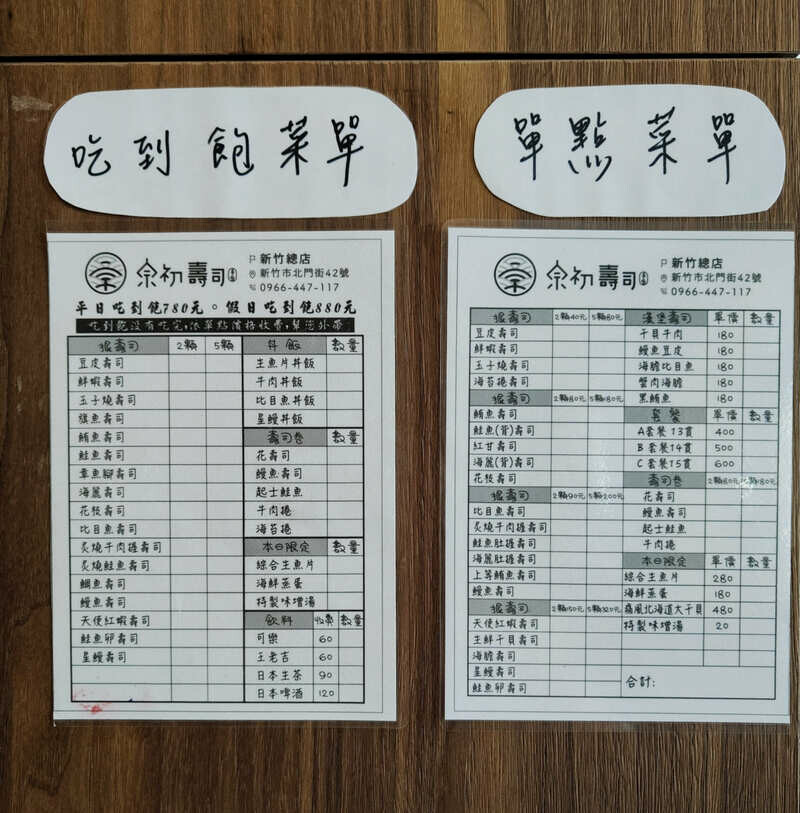 吃到飽菜單
單點菜單
宗初壽司
新竹總店
新竹市北門街42號
0966-447-117
平日吃到飽780元。假日吃到飽880元
吃到飽沒有吃完,依單點價格收費,幫您外帶
握壽司 2顆 5顆
豆皮壽司
鮮蝦壽司
玉子燒壽司
旗魚壽司
鮪魚壽司
鮭魚壽司
章魚腳壽司
海麗壽司
花枝壽司
比目魚壽司
炙燒牛肉握壽司
炙燒鮭魚壽司
鯛魚壽司
鰻魚壽司
天使紅蝦壽司
鮭魚卵壽司
星鰻壽司
丼飯 數量
生魚片丼飯
牛肉丼飯
比目魚丼飯
星鰻丼飯
壽司卷 數量
花壽司
鰻魚壽司
起士鮭魚
牛肉捲
海苔捲
本日限定 數量
綜合生魚片
海鮮蒸蛋
特製味增湯
飲料 收費 數量
可樂 60
王老吉 60
日本生茶 90
日本啤酒 120
宗初壽司
新竹總店
新竹市北門街42號
0966-447-117
握壽司 2顆40元 5顆80元
豆皮壽司
鮮蝦壽司
玉子壽司
海苔捲壽司
握壽司 2顆80元 5顆180元
鮪魚壽司
鮭魚(背)壽司
紅甘壽司
海麗(背)壽司
花枝壽司
握壽司 2顆90元 5顆200元
比目魚壽司
炙燒牛肉握壽司
鮭魚肚握壽司
海麗肚握壽司
上等鮪魚壽司
鰻魚壽司
握壽司 2顆150元 5顆320元
天使紅蝦壽司
生鮮干貝壽司
海膽壽司
星鰻壽司
鮭魚卵壽司
漢堡壽司 單價 數量
干貝牛肉 180
鰻魚豆皮 180
海膽比目魚 180
蟹肉海膽 180
黑鮪魚 180
套餐 單價 數量
A套餐13貫 400
B套餐14貫 500
C套餐15貫 600
壽司卷 2顆80元 5顆180元
花壽司
鰻魚壽司
起士鮭魚
牛肉捲
本日限定 單價 數量
綜合生魚片 280
海鮮蒸蛋 180
痛風北海道大干貝 480
特製味增湯 20
合計: